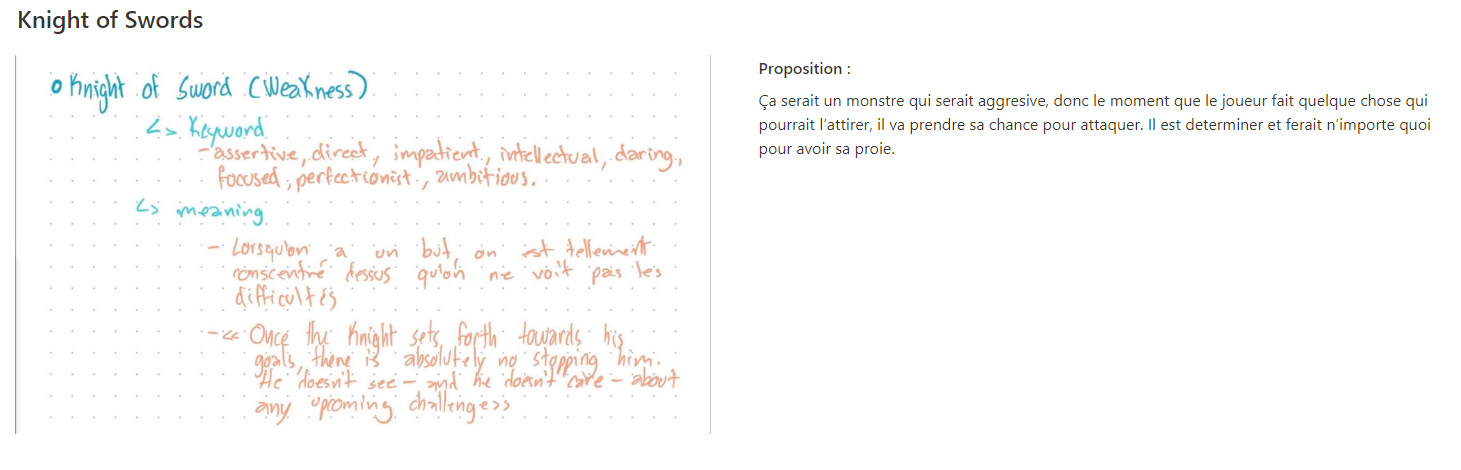 Knight of Swords
Knight of Sword (Weakness)
↳ Keyword
- assertive, direct, impatient, intellectual, daring,
focused, perfectionist, ambitious.
↳ meaning
- Lorsqu'on a un but, on est tellement
conscentré dessus qu'on ne voit pas les
difficultés
- << Once the Knight sets forth towards his
goals, there is absolutely no stopping him.
He doesn't see - and he doesn't care - about
any upcoming challenges >>
Proposition :
Ça serait un monstre qui serait aggresive, donc le moment que le joueur fait quelque chose qui
pourrait l'attirer, il va prendre sa chance pour attaquer. Il est determiner et ferait n'importe quoi
pour avoir sa proie.